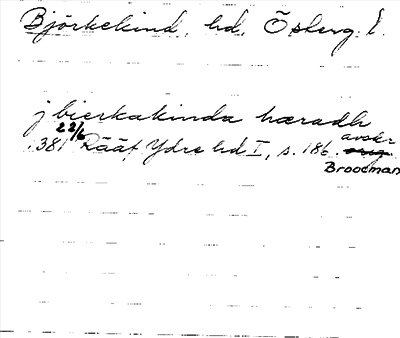 Björkekind, hd, Österg. l.
j bierkakinda hæradh
22/6
1381 Rääf Ydre hd I, s. 186. avskr
orig.
Broocman